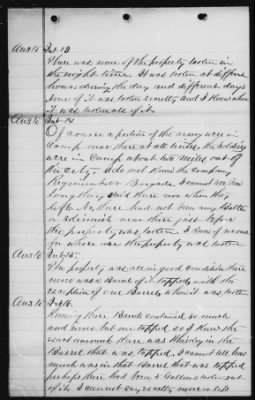 Ans to Int 13
There was none of the property taken in
the night time. It was taken at different
hours during the day and different days
None of it was taken secretly and I knew when
it was taken all of it.
Ans to Int 14
Of course a portion of the army were in
Camp near there at all times. the soldiers
were in Camp about two miles out of
the City. I do not know the Company
Regiment or Brigade. I cannot tell how
long they staid there nor when they
left. There had not been any Battle
or skirmish near there just before
the property was taken. I know of no one
for whose use the property was taken
Ans to Int 15.
The property was all in good condition there
none was a Bunk of it tapped with the
exception of one Barrel when it was taken
Ans to Int 16.
Knowing these contained so much
and none but one tapped so I knew the
exact amount there was Whiskey in the
Barrel that was tapped. I cannot tell how
much was in that Barrel that was tapped
perhaps there had been 5 Gallons taken out
of it. I cannot say exactly more or less